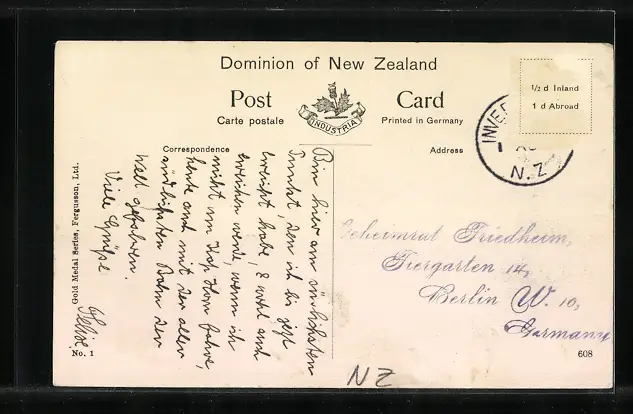 Dominion of New Zealand
Post Card
Carte postale
Printed in Germany
INDUSTRIA
½ d Inland
1 d Abroad
INVER
N.Z
Correspondence
Address
Bin hier am südlichsten
Punkt, den ich bis jetzt
erreicht habe, & wohl auch
erreichen werde, wenn ich
nicht um Kap Horn fahre,
heute auch mit der aller
südlichsten Bahn der
Welt gefahren.
Viele Grüße
Geheimrat Friedheim,
Tiergarten 14,
Berlin W. 10,
Germany
Gold Medal Series, Fergusson, Ltd.
No. 1
608
NZ